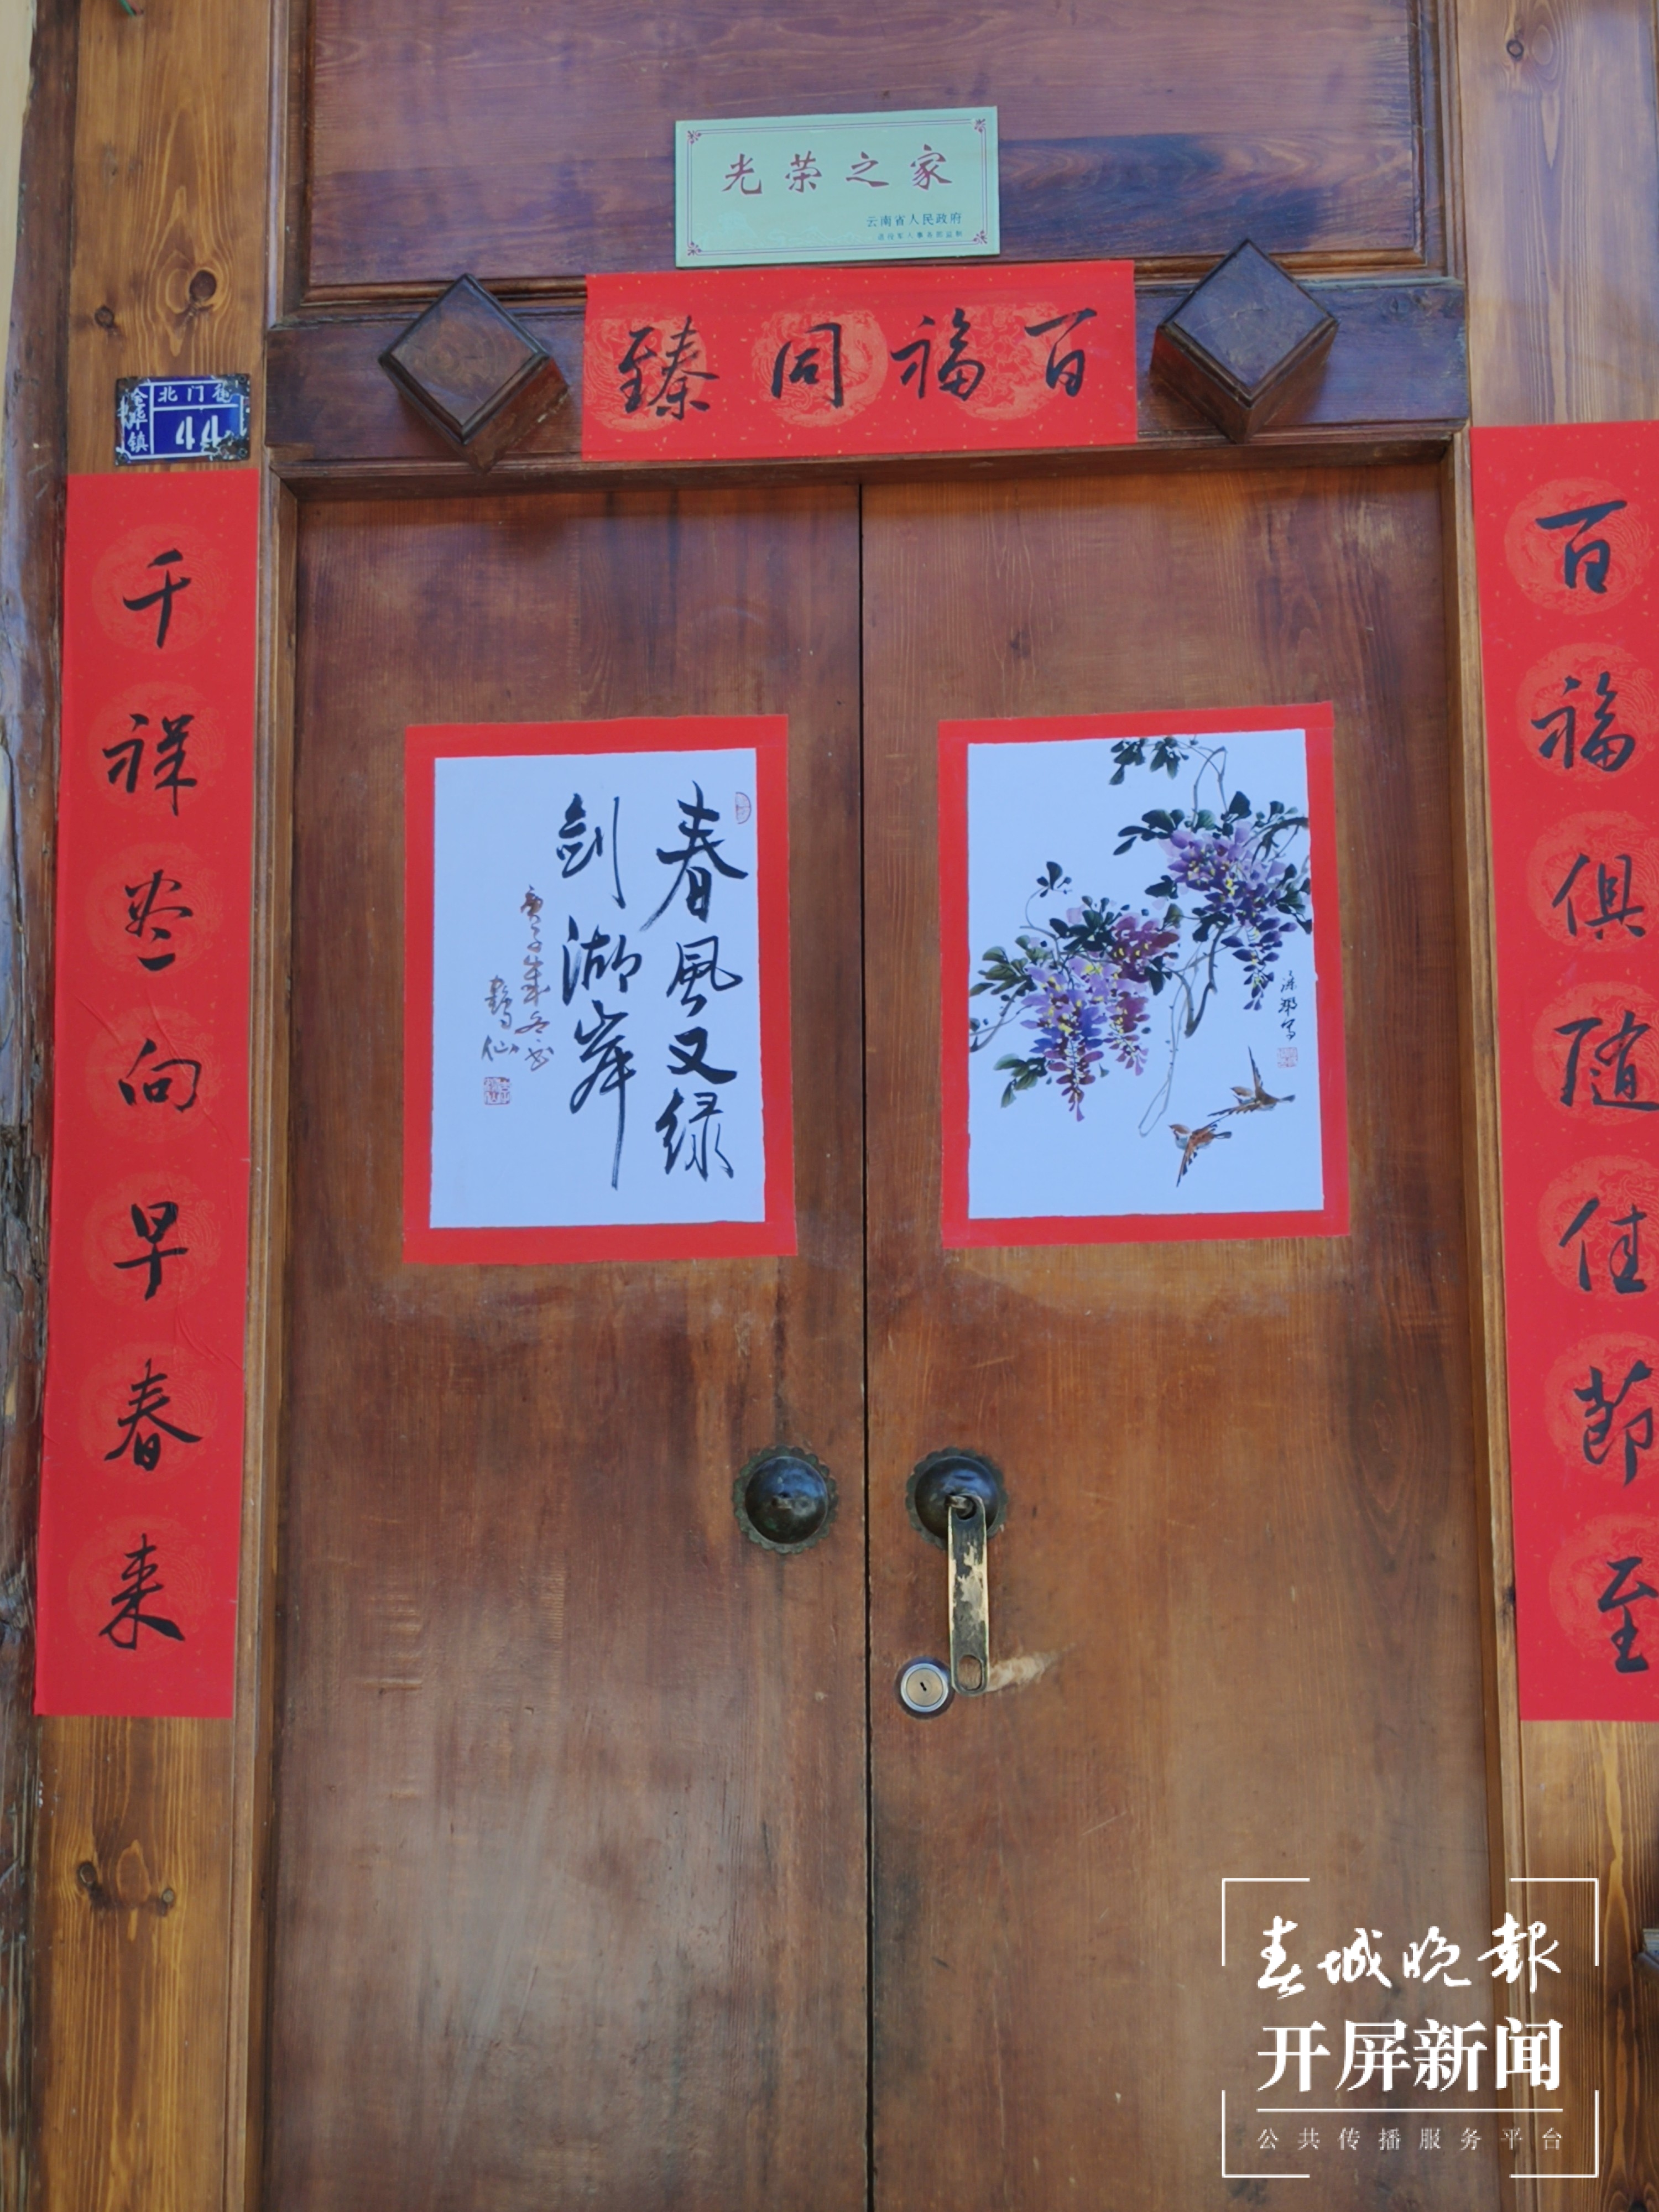 光荣之家
云南省人民政府
百福同臻
北门街
金华镇
44
百福俱随佳节至
千祥尽向早春来
春风又绿
剑湖岸
庚子年冬书
鹤仙
春城晚報
开屏新闻
公共传播服务平台